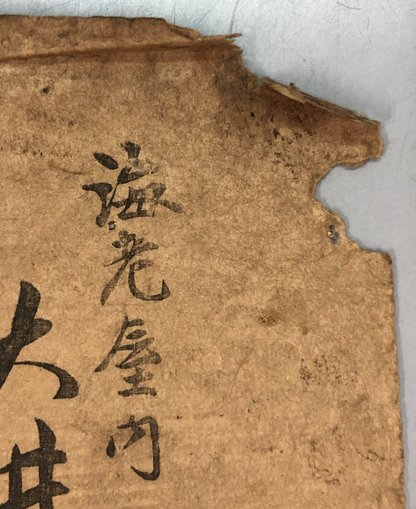 海老屋内
大井